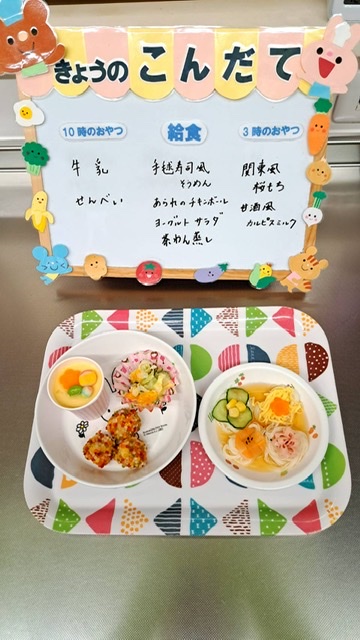 きょうの こんだて
10時のおやつ
牛乳
せんべい
給食
手毬寿司風
そうめん
あられのチキンボール
ヨーグルトサラダ
茶わん蒸し
3時のおやつ
関東風
桜もち
甘酒風
カルピスミルク